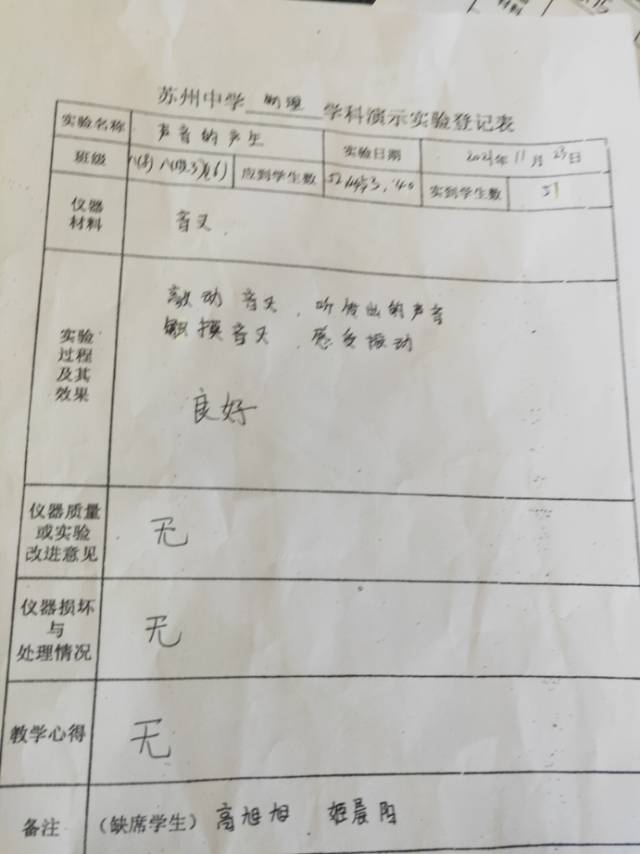 苏州中学 物理 学科演示实验登记表
实验名称 声音的产生 实验日期 2021年11月23日
班级 应到学生数 实到学生数 51
仪器材料 音叉.
实验过程及其效果
敲动音叉,听发出的声音
触摸音叉,感受振动
良好
仪器质量或实验改进意见 无
仪器损坏与处理情况 无
教学心得 无
备注 (缺席学生) 高旭旭 姬晨阳